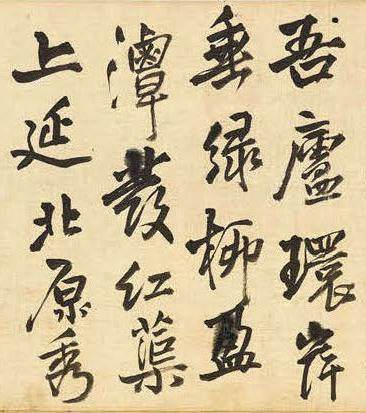 吾廬環岸
垂緑柳盈
潭發紅蕖
上延北原秀